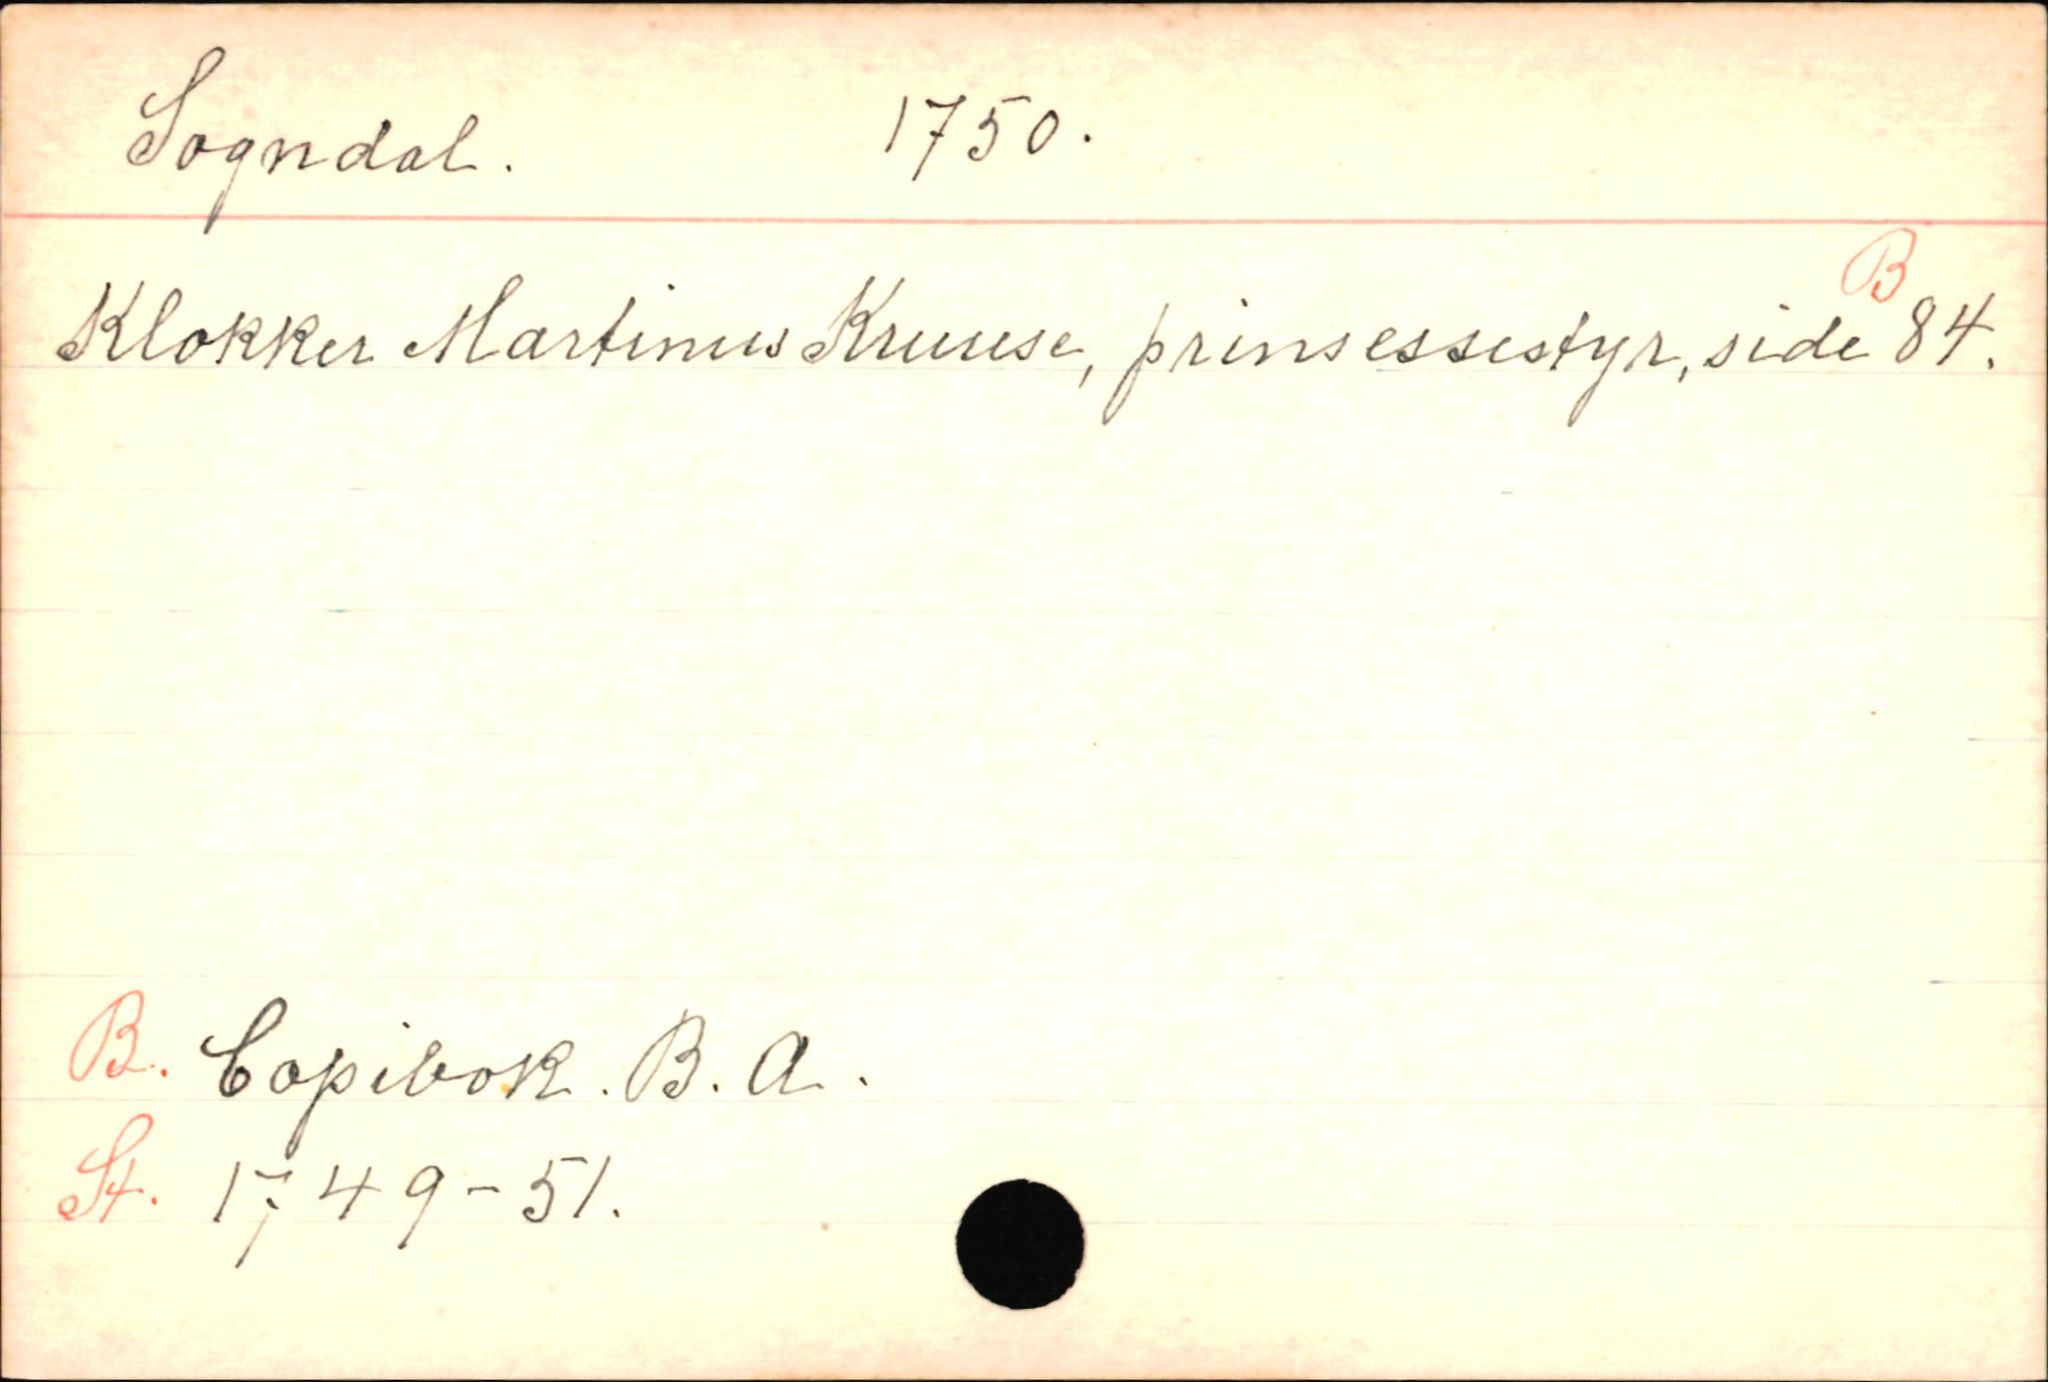 Sogndal. 1750.
B
Klokker Martinus Kruuse, prinsessestyr, side 84.
B. Copibok. B. A.
St. 1749-51.